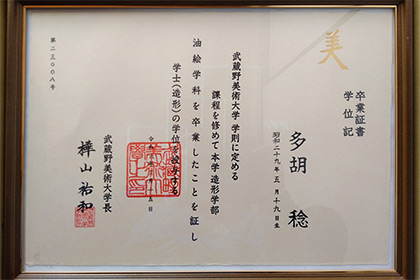 美
卒業証書
学位記
多胡 稔
昭和二十九年五月十六日生
武蔵野美術大学 学則に定める
課程を修めて本学造形学部
油絵学科を卒業したことを証し
学士(造形)の学位を授与する
武蔵野美術大学長
樺山祐和
第二三〇〇八号